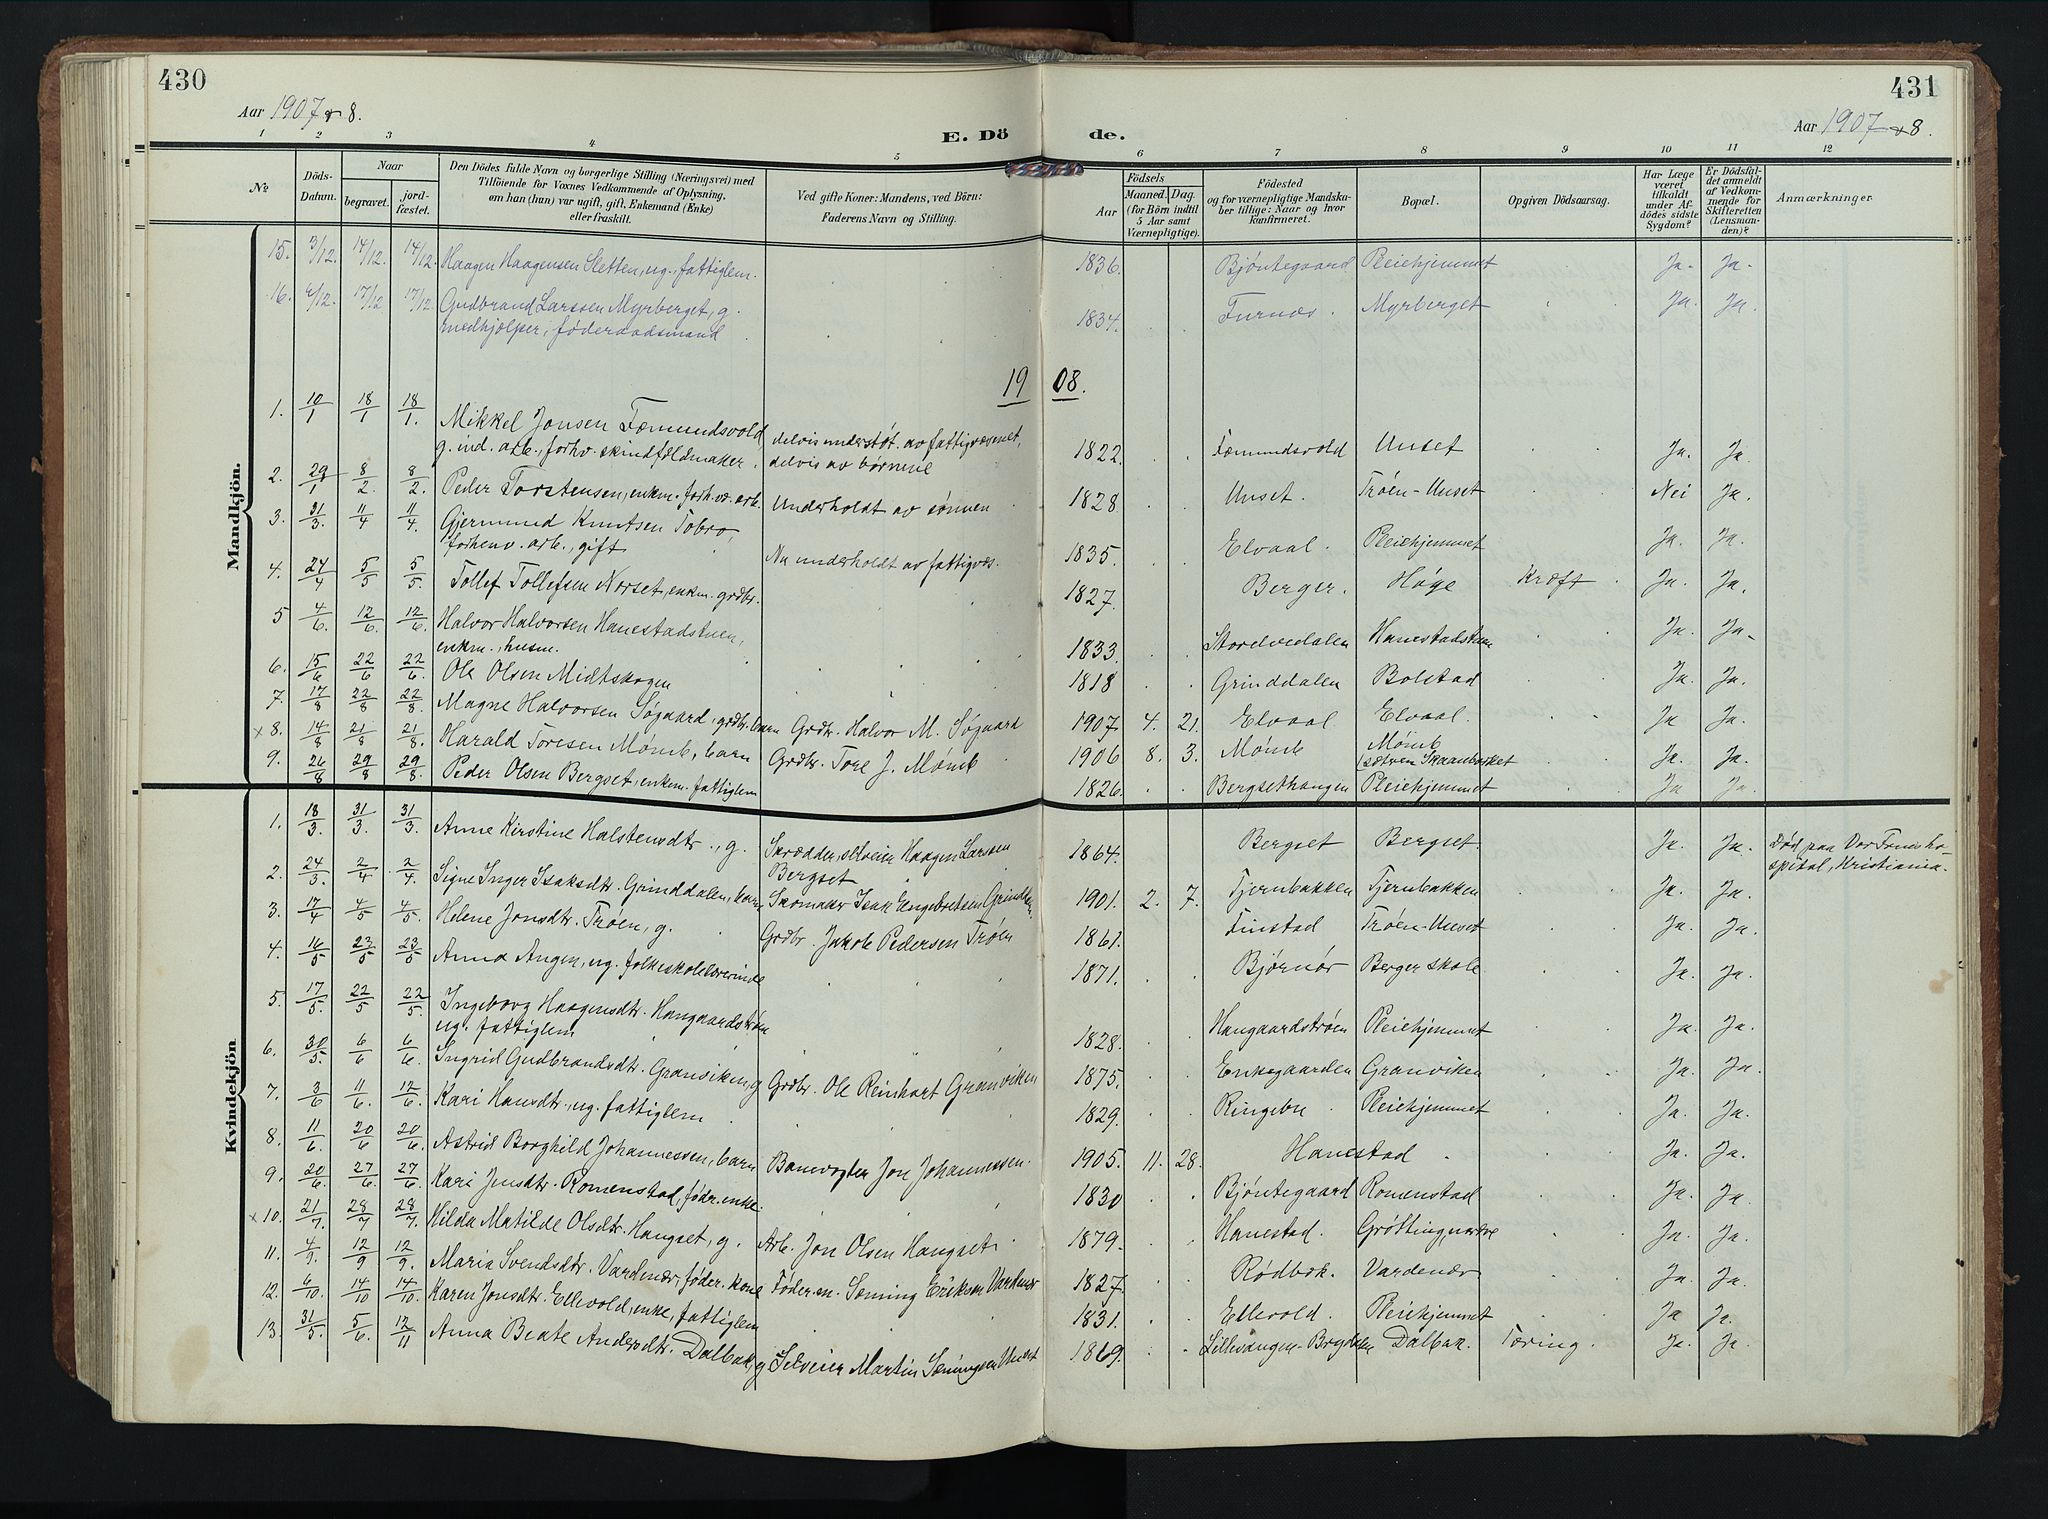 430
431
Aar 1907 & 8.
E. Dö de.
Aar 1907 & 8.
1 2 3 4 5 6 7 8 9 10 11 12
No.
Döds-Datum.
Naar
begravet.
jord-fæstet.
Den Dödes fulde Navn og borgerlige Stilling (Næringsvei) med
Tilföiende for Voxnes Vedkommende af Oplysning,
om han (hun) var ugift, gift, Enkemand (Enke)
eller fraskilt.
Ved gifte Koner: Mandens, ved Börn:
Faderens Navn og Stilling.
Födsels
Aar
Maaned. Dag.
(for Börn indtil
5 Aar samt
Værnepligtige).
Födested
og for værnepligtige Mandska-
ber tillige: Naar og hvor
konfirmeret.
Bopæl.
Opgiven Dödsaarsag.
Har Læge
været
tilkaldt
under Af-
dödes sidste
Sygdom?
Er Dödsfal-
det anmeldt
af Vedkom-
mende for
Skifteretten
(Lensman-
den)?
Anmærkninger
Mandkjön.
15. 3/12. 14/12. 14/12. Haagen Haagensen Sletten, ug., fattiglem. 1836. Bjøntegaard Pleiehjemmet Ja. Ja.
16. 4/12. 17/12 17/12. Gudbrand Larssen Myrberget, g. 1834. Furnæs. Myrberget Ja. Ja.
medhjælper, føderaadsmand
1908.
1. 10/1 18/1 18/1. Mikkel Jonsen Fæmundsvold, delvis understøt. av fattigvæsenet, 1822. Fæmundsvold Unset Ja. Ja.
g. ind. arb., forhv. skindfældmaker. delvis av børnene
2. 29/1 8/2. 8/2. Peder Torstensen, enkm. forh.v. arb. Underholdt av sønnen 1828. Unset. Trøen-Unset Nei Ja.
3. 31/3. 11/4 11/4. Gjermund Knutsen Tobro, 1835. Elvaal. Pleiehjemmet Ja. Ja.
forhenv. arb., gift Nu underholdt av fattigvæs.
4. 24/4 5/5 5/5. Tollef Tollefsen Norset, enkm. grdbr. 1827. Berger. Høge Kræft Ja. Ja.
5 4/6. 12/6. 12/6. Halvor Halvorsen Hanestadstuen, 1833. Stordvedalen Hanestadstuen Ja. Ja.
enkm., husm.
6. 15/6 22/6 22/6. Ole Olsen Midtskogen 1818 Grinddalen Bolstad Ja. Ja.
7. 17/8 22/8 22/8. Magne Halvorsen Søgaard, grdbr. barn Grdbr. Halvor M. Søgaard 1907. 4. 21. Elvaal Elvaal. Ja Ja.
x 8. 14/8 21/8 21/8. Harald Toresen Mømb, barn Grdbr. Tore J. Mømb 1906 8. 3. Mømb Mømb Ja. Ja.
9. 26/8 29/8 29/8. Peder Olsen Bergset, enkm. fattiglem 1826. Bergsethangen Pleiehjemmet Ja Ja.
Kvindekjön
1. 18/3. 31/3. 31/3. Anne Kirstine Halstensdtr., g. Skrædder, selveier Haagen Larssen 1864. Bergset Bergset. Ja. Ja. Død paa Vor Frues ho-
Bergset spital, Kristiania.
2. 24/3. 2/4 2/4. Signe Inger Isaksdtr. Grinddalen, barn Skomaker Isak Engebretsen Grinddalen 1901. 2. 7. Tjernbakken Tjernbakken Ja. Ja.
3. 17/4 4/5 4/5. Helene Jonsdtr. Trøen, g. Grdbr. Jakob Pedersen Trøen 1861. Finstad Trøen-Unset Ja. Ja.
4. 16/5 23/5 23/5. Anna Angen, ug. folkeskolelærerinde 1871. Bjørnør Berger skole Ja. Ja.
5. 17/5. 22/5 22/5. Ingeborg Haagensdtr. Haugaardstrøen 1828. Haugaardstrøen Pleiehjemmet Ja. Ja.
ug. fattiglem
6. 30/5. 6/6 6/6. Ingrid Gudbrandsdtr. Granviken, g Grdbr. Ole Reinhart Granviken 1875. Enkegaarden Granviken Ja. Ja.
7. 3/6 11/6. 12/6. Kari Hansdtr., ug. fattiglem 1829. Ringebu. Pleiehjemmet Ja. Ja.
8. 11/6. 20/6 20/6. Astrid Borghild Johannessen, barn Banevogter Jon Johannessen. 1905. 11. 28. Hanestad Ja. Ja.
9. 20/6. 27/6. 27/6 Kari Jensdtr. Romenstad, føder. enke. 1830 Bjøntegaard Romenstad Ja. Ja.
x 10. 21/7. 28/7 28/7. Hilda Matilde Olsdtr. Haugset, g. Arb. Jon Olsen Haugset. 1879. Hanestad. Grøtting, nordre Ja. Ja.
11. 4/9. 12/9 12/9. Maria Svendsdtr. Vardenær, føder. kone Føder.m. Søming Eriksen Vardenær 1827. Rødbæk. Vardenær Ja. Ja.
12. 6/10. 14/10 14/10. Karen Jonsdtr. Ellevold, enke, fattiglem 1831. Ellevold. Pleiehjemmet Ja Ja.
13. 31/5. 5/6. 12/11 Anna Beate Andersdtr. Dalbak, g Selveier Martin Sæmingsen Unset 1869. Lillevangen-Brydalen Dalbak. Tæring. Ja. Ja.